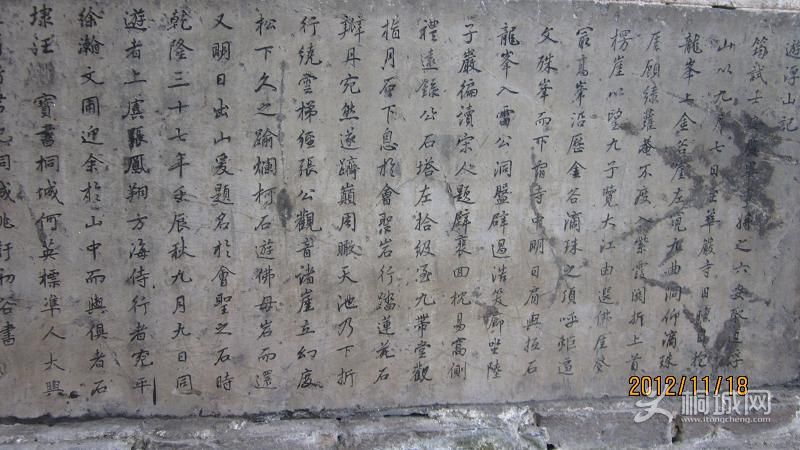 遊浮山記
筠試士
山以九月七日至華嚴寺日
龍峯上金谷崖左 九曲洞仰滴珠
崖顧綠蘿菴不度入紫霞関折上首
楞崖以望九子覽大江由選佛崖登
㝡高峯沿歷金谷滴珠之頂呼炬這
文殊峯而下宿寺中明日肩輿抵石
龍峯入雷公洞盤壁過浩笈廊坐陸
子巖徧讀宋人題壁裵回枕易窩側
禮遠錄公石塔左拾級客九帶堂觀
指月石下息於會聖岩行踏蓮花石
辧丹宛然遂躋巔周瞰天池乃下折
行繞雲梯經張公觀音諸崖立幻度
松下久之踰爛柯石遊佛母岩而還
又明日出山爰題名於會聖之石時
乾隆三十七年壬辰秋九月九日同
遊者上虞張鳳翔方海侍行者兖平
徐瀚文圃迎余於山中而與俱者石
埭汪 寶書桐城何英標準人大興
2012/11/18
桐城网
www.itongcheng.com